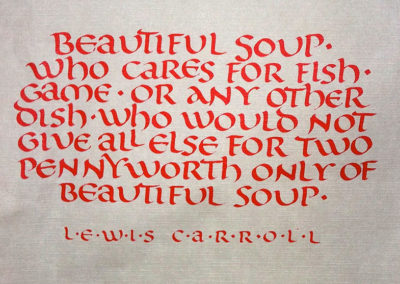 BEAUTIFUL SOUP·
WHO CARES FOR FISH·
GAME · OR ANY OTHER
DISH · WHO WOULD NOT
GIVE ALL ELSE FOR TWO
PENNYWORTH ONLY OF
BEAUTIFUL SOUP·
L·E·W·I·S C·A·R·R·O·L·L